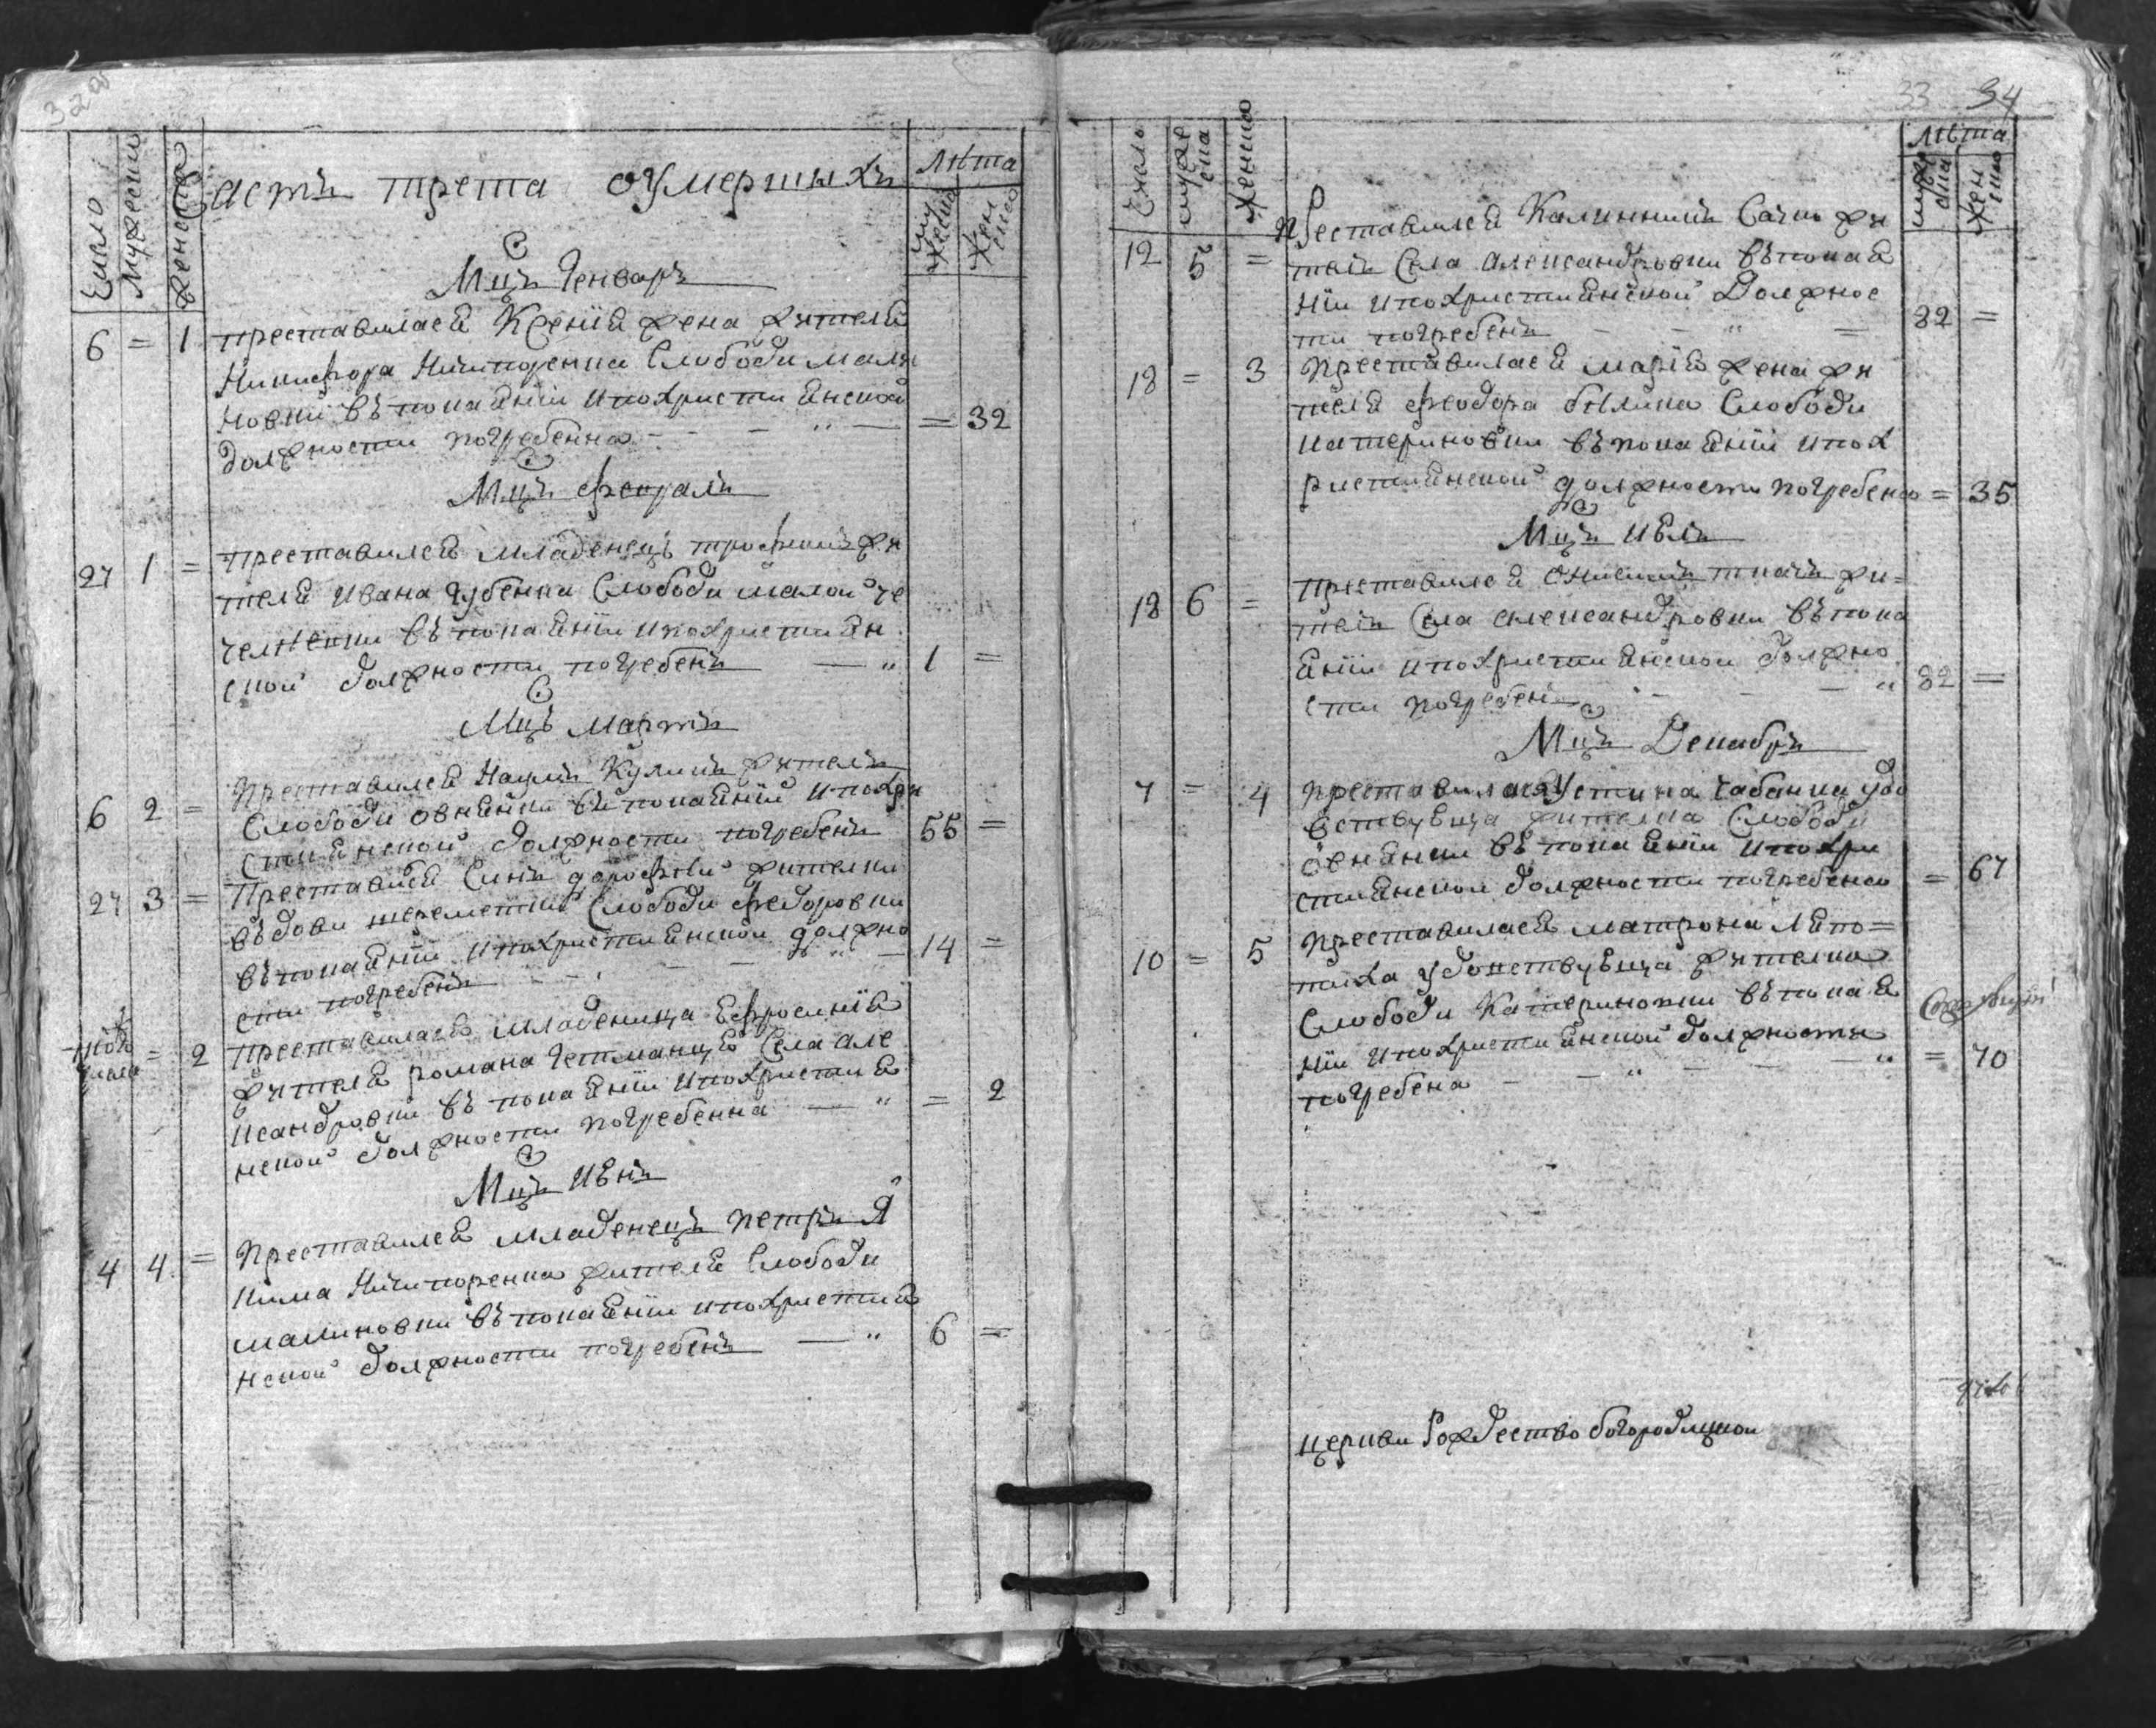 32об
Число
Мужеска
Женска
Часть трета оумершихъ
Лѣта
мужеска
женско
Мцъ Генваръ
6 = 1 преставиласѧ Ксеніѧ жена жителѧ
Никифора Ничипоренка Слободи Мали
новки въ покаѧніи ипохристиѧнской
должности погребенна = 32
Мцъ февралъ
27 1 = преставилсѧ младенецъ трофимъ жи
телѧ Ивана Губенка Слободи малой че
челѣевки въ покаѧніи ипохристиѧн
ской должности погребенъ 1 =
Мцъ Мартъ
6 2 = Преставилсѧ Наумъ Куликъ житель
Слободи овнѧнки въ покаѧніи ипохри
стиѧнской должности погребенъ 55 =
27 3 = Престависѧ Синъ дорофѣй жителки
вѣдови шереметки Слободи федоровки
въ покаѧніи ипохристиѧнской должно
сти погребенъ 14 =
тогожъ
числа = 2 Преставиласѧ младеница Ефросиніѧ
жителѧ романа Гетманцѧ Села але
ксандровки въ покаѧніи ипохристиѧ
нской должности погребенна = 2
Мцъ Июнь
4 4 = Преставилсѧ младенецъ петръ Я
кима Ничипоренка жителѧ Слободи
малиновки въ покаѧніи ипохристиѧ
нской должности погребенъ 6 =
33 34
Число
муже
ска
женско
Лѣта
муже
ска
жен
ско
12 5 = преставилсѧ Калинникъ Сачко жи
тель Села Александровки въ покаѧ
ніи ипохристиѧнской Должнос
ти погребенъ 82 =
18 = 3 Преставиласѧ маріѧ жена жи
телѧ феодора білика Слободи
катериновки въ покаѧніи ипох
ристиѧнской должности погребено = 35
Мцъ Июль
18 6 = Преставилсѧ Онисимъ ткачъ жи=
тель Села александровки въ пока
ѧніи ипохристиѧнской должно
сти погребенъ 82 =
Мцъ Декабръ
7 = 4 Преставиласѧ Устина чабанка удо
вствующа жителка Слободи
овнѧнки въ покаѧніи ипохри
стиѧнской должности погребено = 67
10 = 5 Преставиласѧ матрона Лѧпо=
тиха удовствующа жителка
Слободи Катериновки въ покаѧ
ніи ипохристиѧнской должности
погребена = 70
церкви Рождество богородицкой